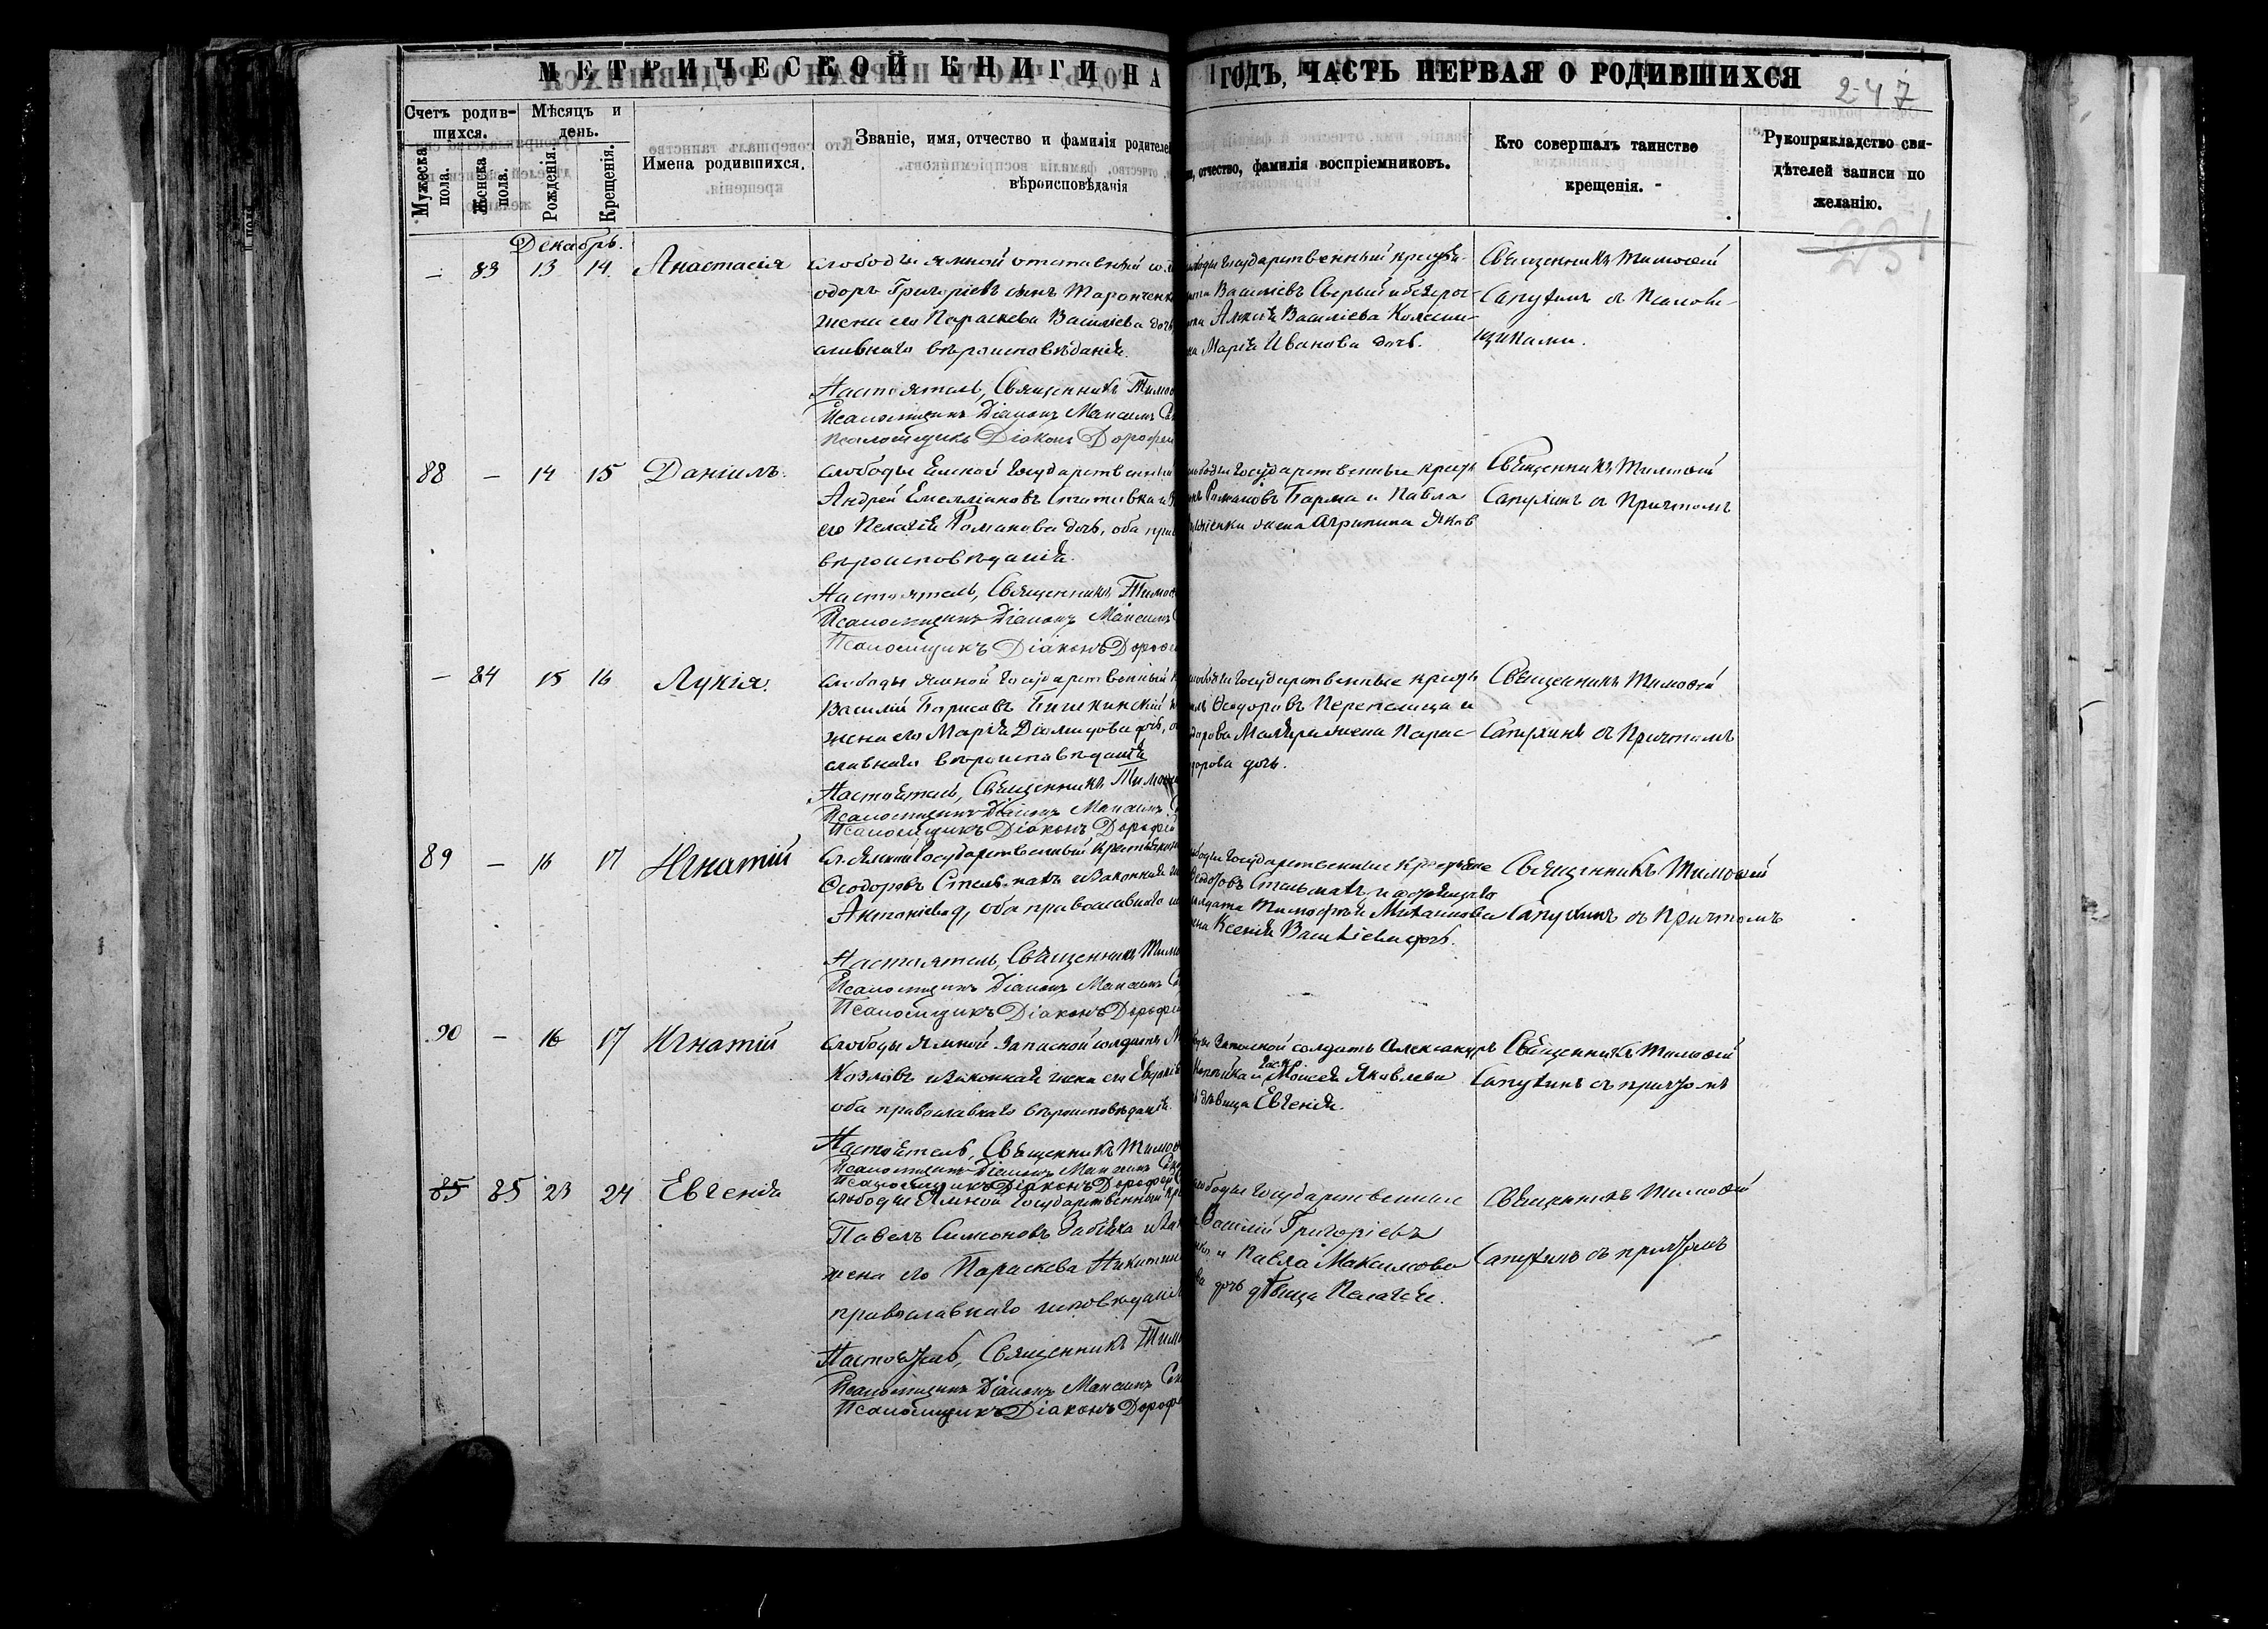 МЕТРИЧЕСКОЙ КНИГИ НА
ГОДЪ, ЧАСТЬ ПЕРВАЯ О РОДИВШИХСЯ
247
Счетъ родив-
шихся.
Мужеска
пола.
Женска
пола.
Мѣсяцъ и
день.
Рожденія.
Крещенія.
Имена родившихся.
Званіе, имя, отчество и фамилія родителе
вѣроисповѣданія
отчество, фамилія воспріемниковъ.
Кто совершалъ таинство
крещенія.
Рукоприкладство сви-
дѣтелей записи по
желанію.
231
Декабрь.
— 83 13 14 Анастасія
слободы Ямной отставный
Григоріевъ сынъ
жена его Параскева Василіева доч
славнаго вѣроисповѣданія.
Настоятель, Священникъ Тимоѳ
Псаломщикъ Діаконъ Максимъ
Псаломщикъ Діаконъ Дорофей
государственный крестья-
Василіевъ
Василіева
Марія Иванова дочь.
Священникъ Тимоѳей
Сапухинъ съ Псалом-
щиками.
88 — 14 15 Даніилъ.
слободы Ямной Государственный
Андрей Емелліановъ
его Пелагія Романова дочь, оба пра
вѣроисповѣданія.
Настоятель, Священникъ Тимоѳ
Псаломщикъ Діаконъ Максимъ
Псаломщикъ Діаконъ Дорофе
Государственные крест
Романовъ Барма и Павла
жена Агрипина Яков
Священникъ Тимоѳей
Сапухинъ съ Причтомъ
— 84 15 16 Лукія.
слободы Ямной Государственный
Василій Борисовъ
жена его Марія Діомидова дочь,
славнаго вѣроисповѣданія
Настоятель, Священникъ Тимоѳ
Псаломщикъ Діаконъ Максимъ
Псаломщикъ Діаконъ Дорофей
Государственные крест
Ѳеодоровъ Перепелица и
жена Парас-
дочь.
Священникъ Тимоѳей
Сапухинъ съ Причтомъ
89 — 16 17 Игнатій
сл. Ямной Государственный Крестьянинъ
Ѳеодоровъ Стельмахъ и законная
Антоніева, оба православнаго
Настоятель, Священникъ Тимо
Псаломщикъ Діаконъ Максимъ
Псаломщикъ Діаконъ Дорофе
Государственные Крестьяне
Стельмахъ и
Тимофея Михаилова
Ксенія Василіева дочь.
Священникъ Тимоѳей
Сапухинъ съ Причтомъ
90 — 16 17 Игнатій
слободы Ямной Запасной солдатъ
Козловъ и законная жена его Евдокія
оба православнаго вѣроисповѣданія.
Настоятель, Священникъ Тимоѳ
Псаломщикъ Діаконъ Максимъ
Псаломщикъ Діаконъ Дорофей
Запасной солдатъ Александръ
и Моисея Яковлева
дѣвица Евгенія.
Священникъ Тимоѳей
Сапухинъ съ причтомъ
85 85 23 24 Евгенія
слободы Ямной Государственный кр
Павелъ Симоновъ и
жена его Параскева Никитина
православнаго исповѣданія
Настоятель, Священникъ Тимо
Псаломщикъ Діаконъ Максимъ
Псаломщикъ Діаконъ Дорофе
Государственные
Василій Григоріевъ
и Павла Максимова
дочь дѣвица Пелагія.
Священникъ Тимоѳей
Сапухинъ съ причтомъ